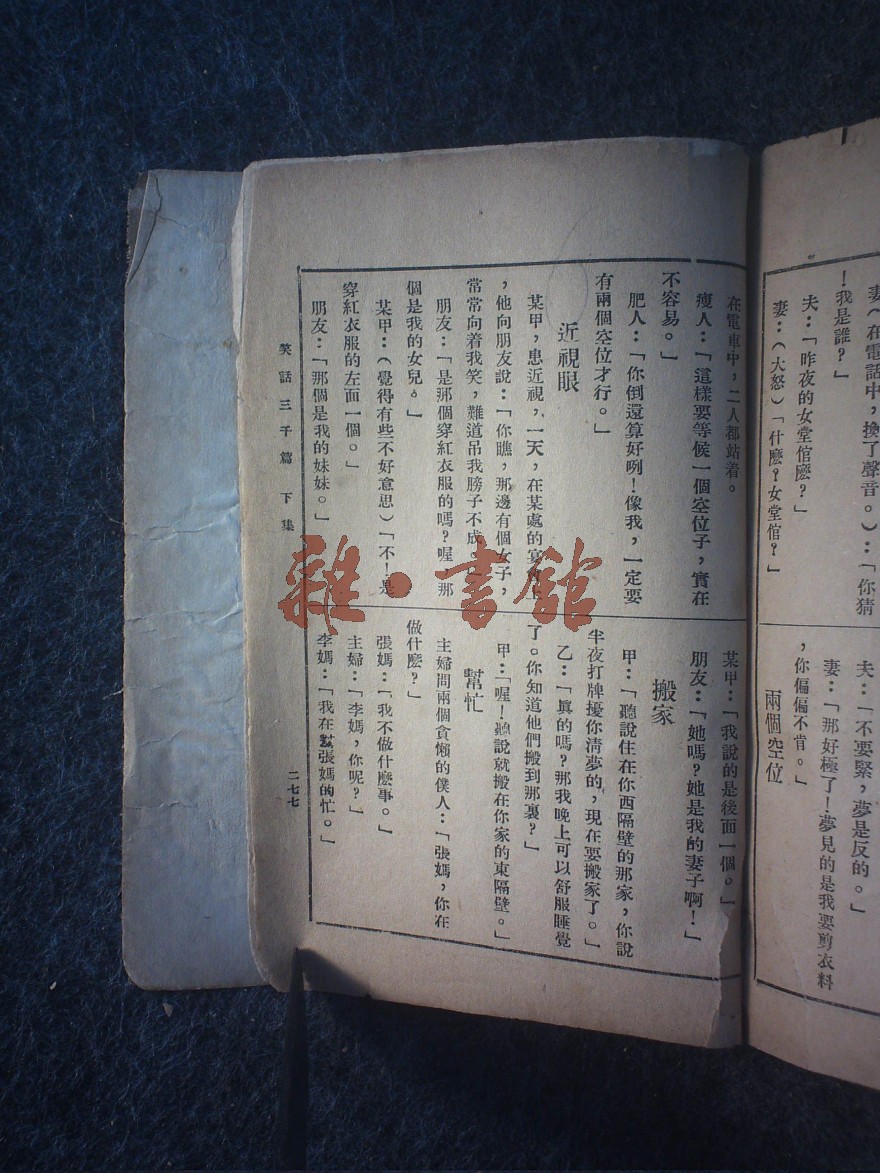 妻(在電話中，換了聲音。)：「你猜
！我是誰？」
夫：「昨夜的女堂倌麽？」
妻：(大怒)「什麽？女堂倌？」
夫：「不要緊，夢是反的。」
妻：「那好極了！夢見的是我要剪衣料
，你偏偏不肯。」
兩個空位
在電車中，二人都站着。
瘦人：「這樣要等候一個空位子，實在
不容易。」
肥人：「你倒還算好咧！像我，一定要
有兩個空位才行。」
近視眼
某甲，患近視，一天，在某處的宴會上
，他向朋友說：「你瞧，那邊有個女子，
常常向着我笑，難道吊我膀子不成
朋友：「是那個穿紅衣服的嗎？喔，那
個是我的女兒。」
某甲：(覺得有些不好意思)「不！是
穿紅衣服的左面一個。」
朋友：「那個是我的妹妹。」
某甲：「我說的是後面一個。」
朋友：「她嗎？她是我的妻子啊！」
搬家
甲：「聽說住在你西隔壁的那家，你說
半夜打牌擾你清夢的，現在要搬家了。」
乙：「真的嗎？那我晚上可以舒服睡覺
了。你知道他們搬到那裏？」
甲：「喔！聽說就搬在你家的東隔壁。」
幫忙
主婦問兩個貪懶的僕人：「張媽，你在
做什麽？」
張媽：「我不做什麽事。」
主婦：「李媽，你呢？」
李媽：「我在幫張媽的忙。」
笑話三千篇 下集
二七七
雜·書館